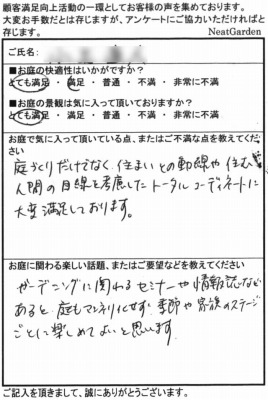 顧客満足向上活動の一環としてお客様の声を集めております。
大変お手数だとは存じますが、アンケートにご協力いただければと
存じます。 NeatGarden
ご氏名:
■お庭の快適性はいかがですか?
とても満足・満足・普通・不満・非常に不満
■お庭の景観は気に入って頂いておりますか?
とても満足・満足・普通・不満・非常に不満
お庭で気に入って頂いている点、またはご不満な点を教えてください
庭づくりだけでなく、住まいとの動線や住む
人間の目線を考慮したトータルコーディネートに
大変満足しております。
お庭に関わる楽しい話題、またはご要望などを教えてください
ガーデニングに関わるセミナーや情報誌など
あると、庭もマンネリ化せず季節や家族のステージ
ごとに楽しめてよいと思います
ご記入を頂きまして、誠にありがとうございます。